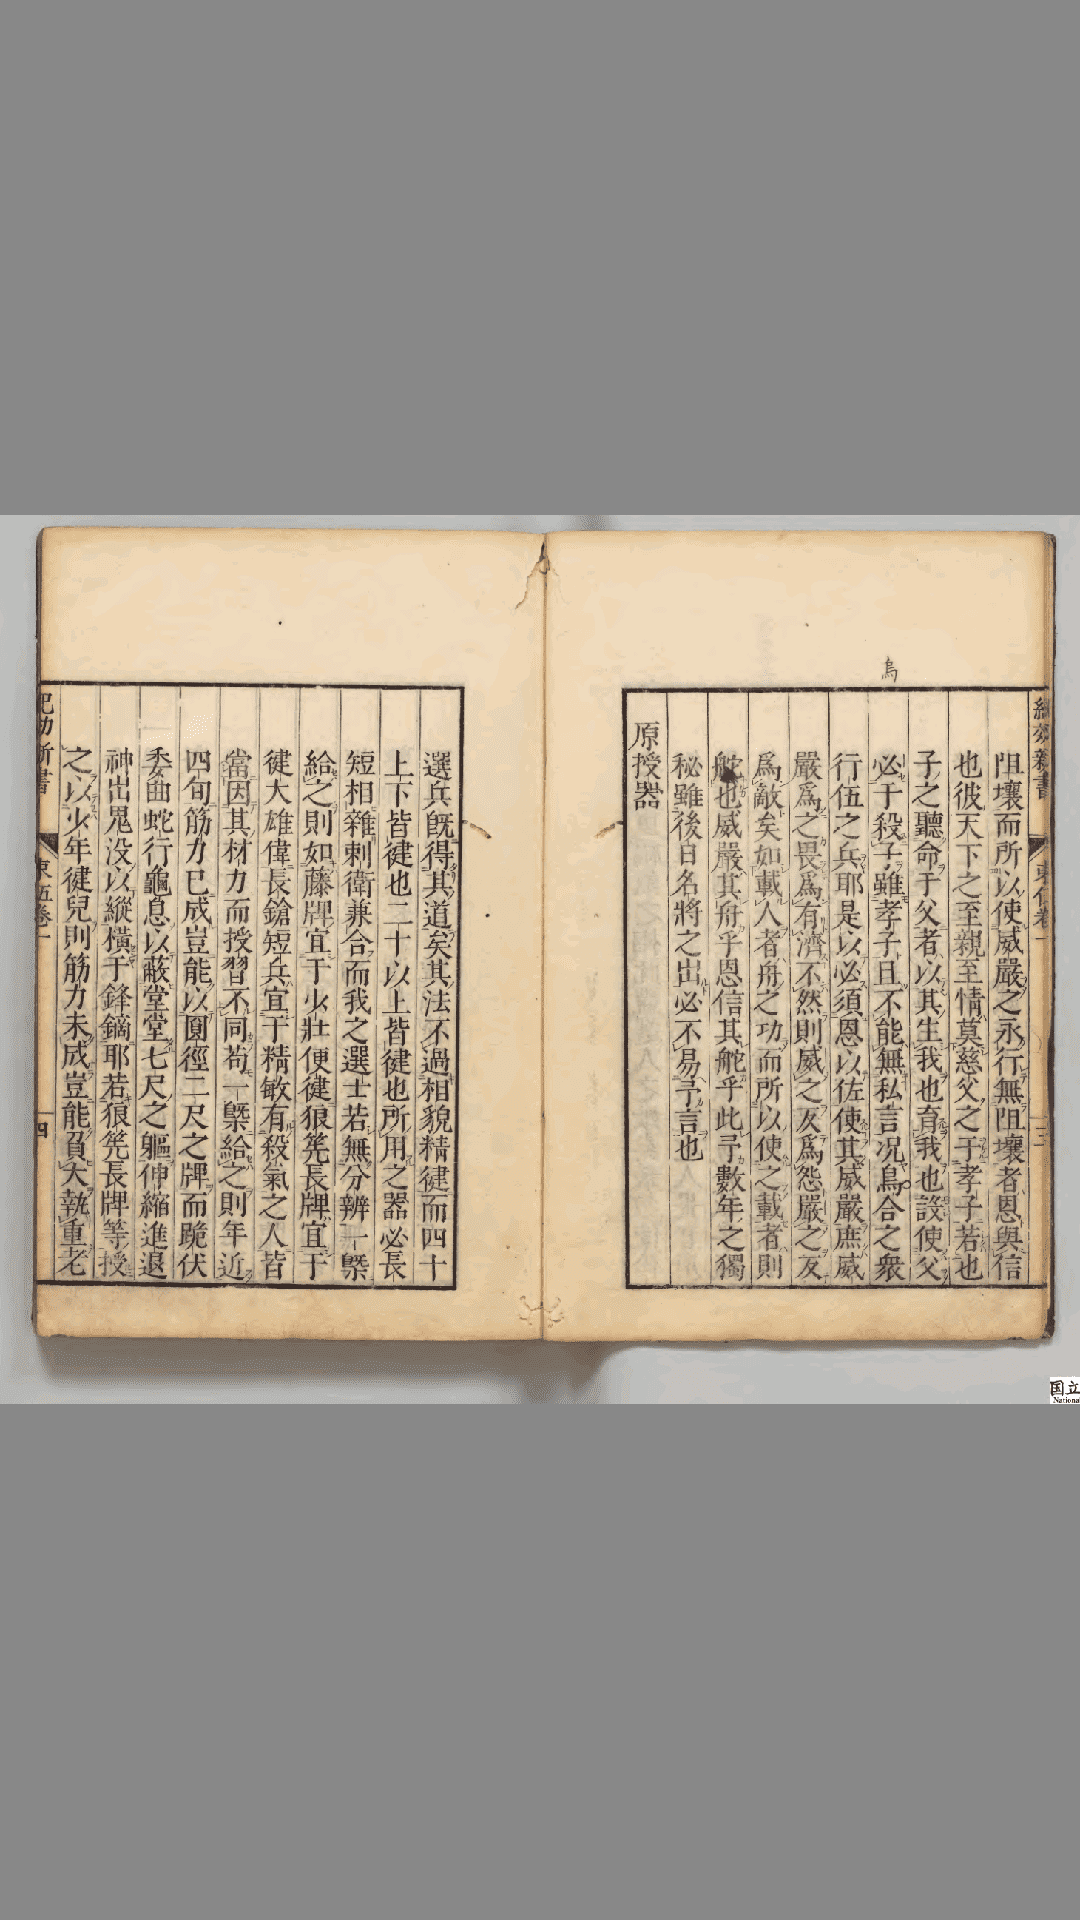 烏
阻壞而所以使威嚴之永行無阻壞者恩與信
也彼天下之至親至情莫慈父之于孝子若也
子之聽命于父者以其生我也育我也設使父
必于殺子雖孝子且不能無私言况鳥合之衆
行伍之兵耶是以必須恩以佐使其威嚴庶威
嚴爲之畏爲有濟不然則威之反爲怨嚴之反
爲敵矣如載人者舟之功而所以使之載者則
舵也威嚴其舟乎恩信其舵乎此予數年之獨
秘雖後日名將之出必不易予言也
原授器
選兵旣得其道矣其法不過相貌精徤而四十
上下皆徤也二十以上皆徤也所用之器必長
短相雜刺衛兼合而我之選士若無分辨一槩
給之則如藤牌宜于少壯便徤狼筅長牌宜于
徤大雄偉長鎗短兵宜于精敏有殺氣之人皆
當因其材力而授習不同苟一槩給之則年近
四旬筋力已成豈能以圓徑二尺之牌而跪伏
委曲蛇行龜息以蔽堂堂七尺之軀伸縮進退
神出鬼没以縱橫于鋒鏑耶若狼筅長牌等授
之以少年徤兒則筋力未成豈能負大執重老
四
国立
National